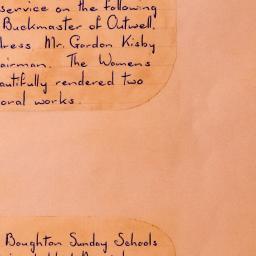 service on the following
Buckmaster of Outwell.
dress Mr. Gordon Kisby
airman. The Womens
autifully rendered two
oral works.
Boughton Sunday Schools